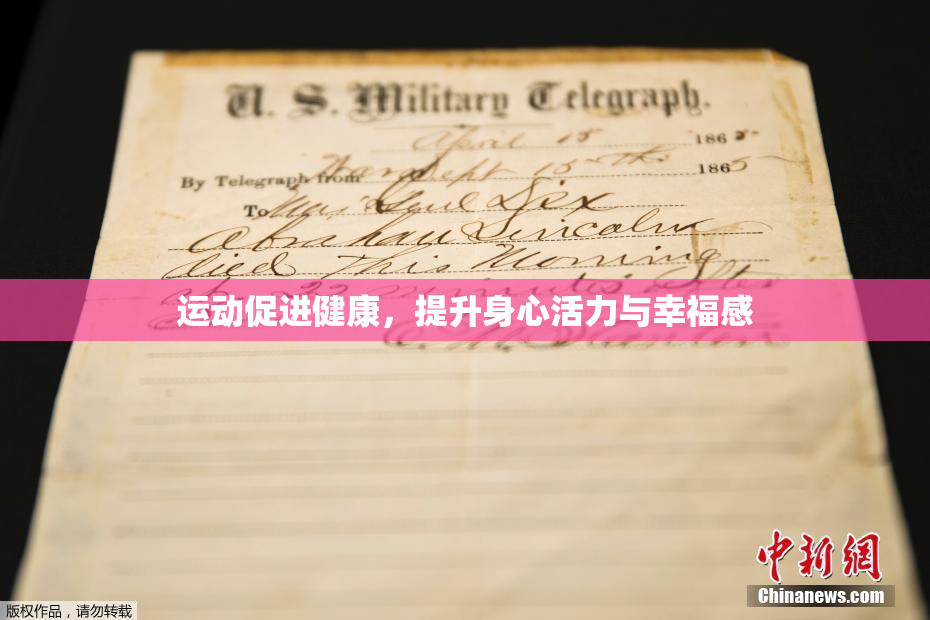 U. S. Military Telegraph.
April 15 1865
By Telegraph from War Dept 15th 1865
To Maj Genl Dix
Abraham Lincoln
died This Morning
at 22 minutes after
运动促进健康，提升身心活力与幸福感
E. M. Stanton
中新网
Chinanews.com
版权作品，请勿转载